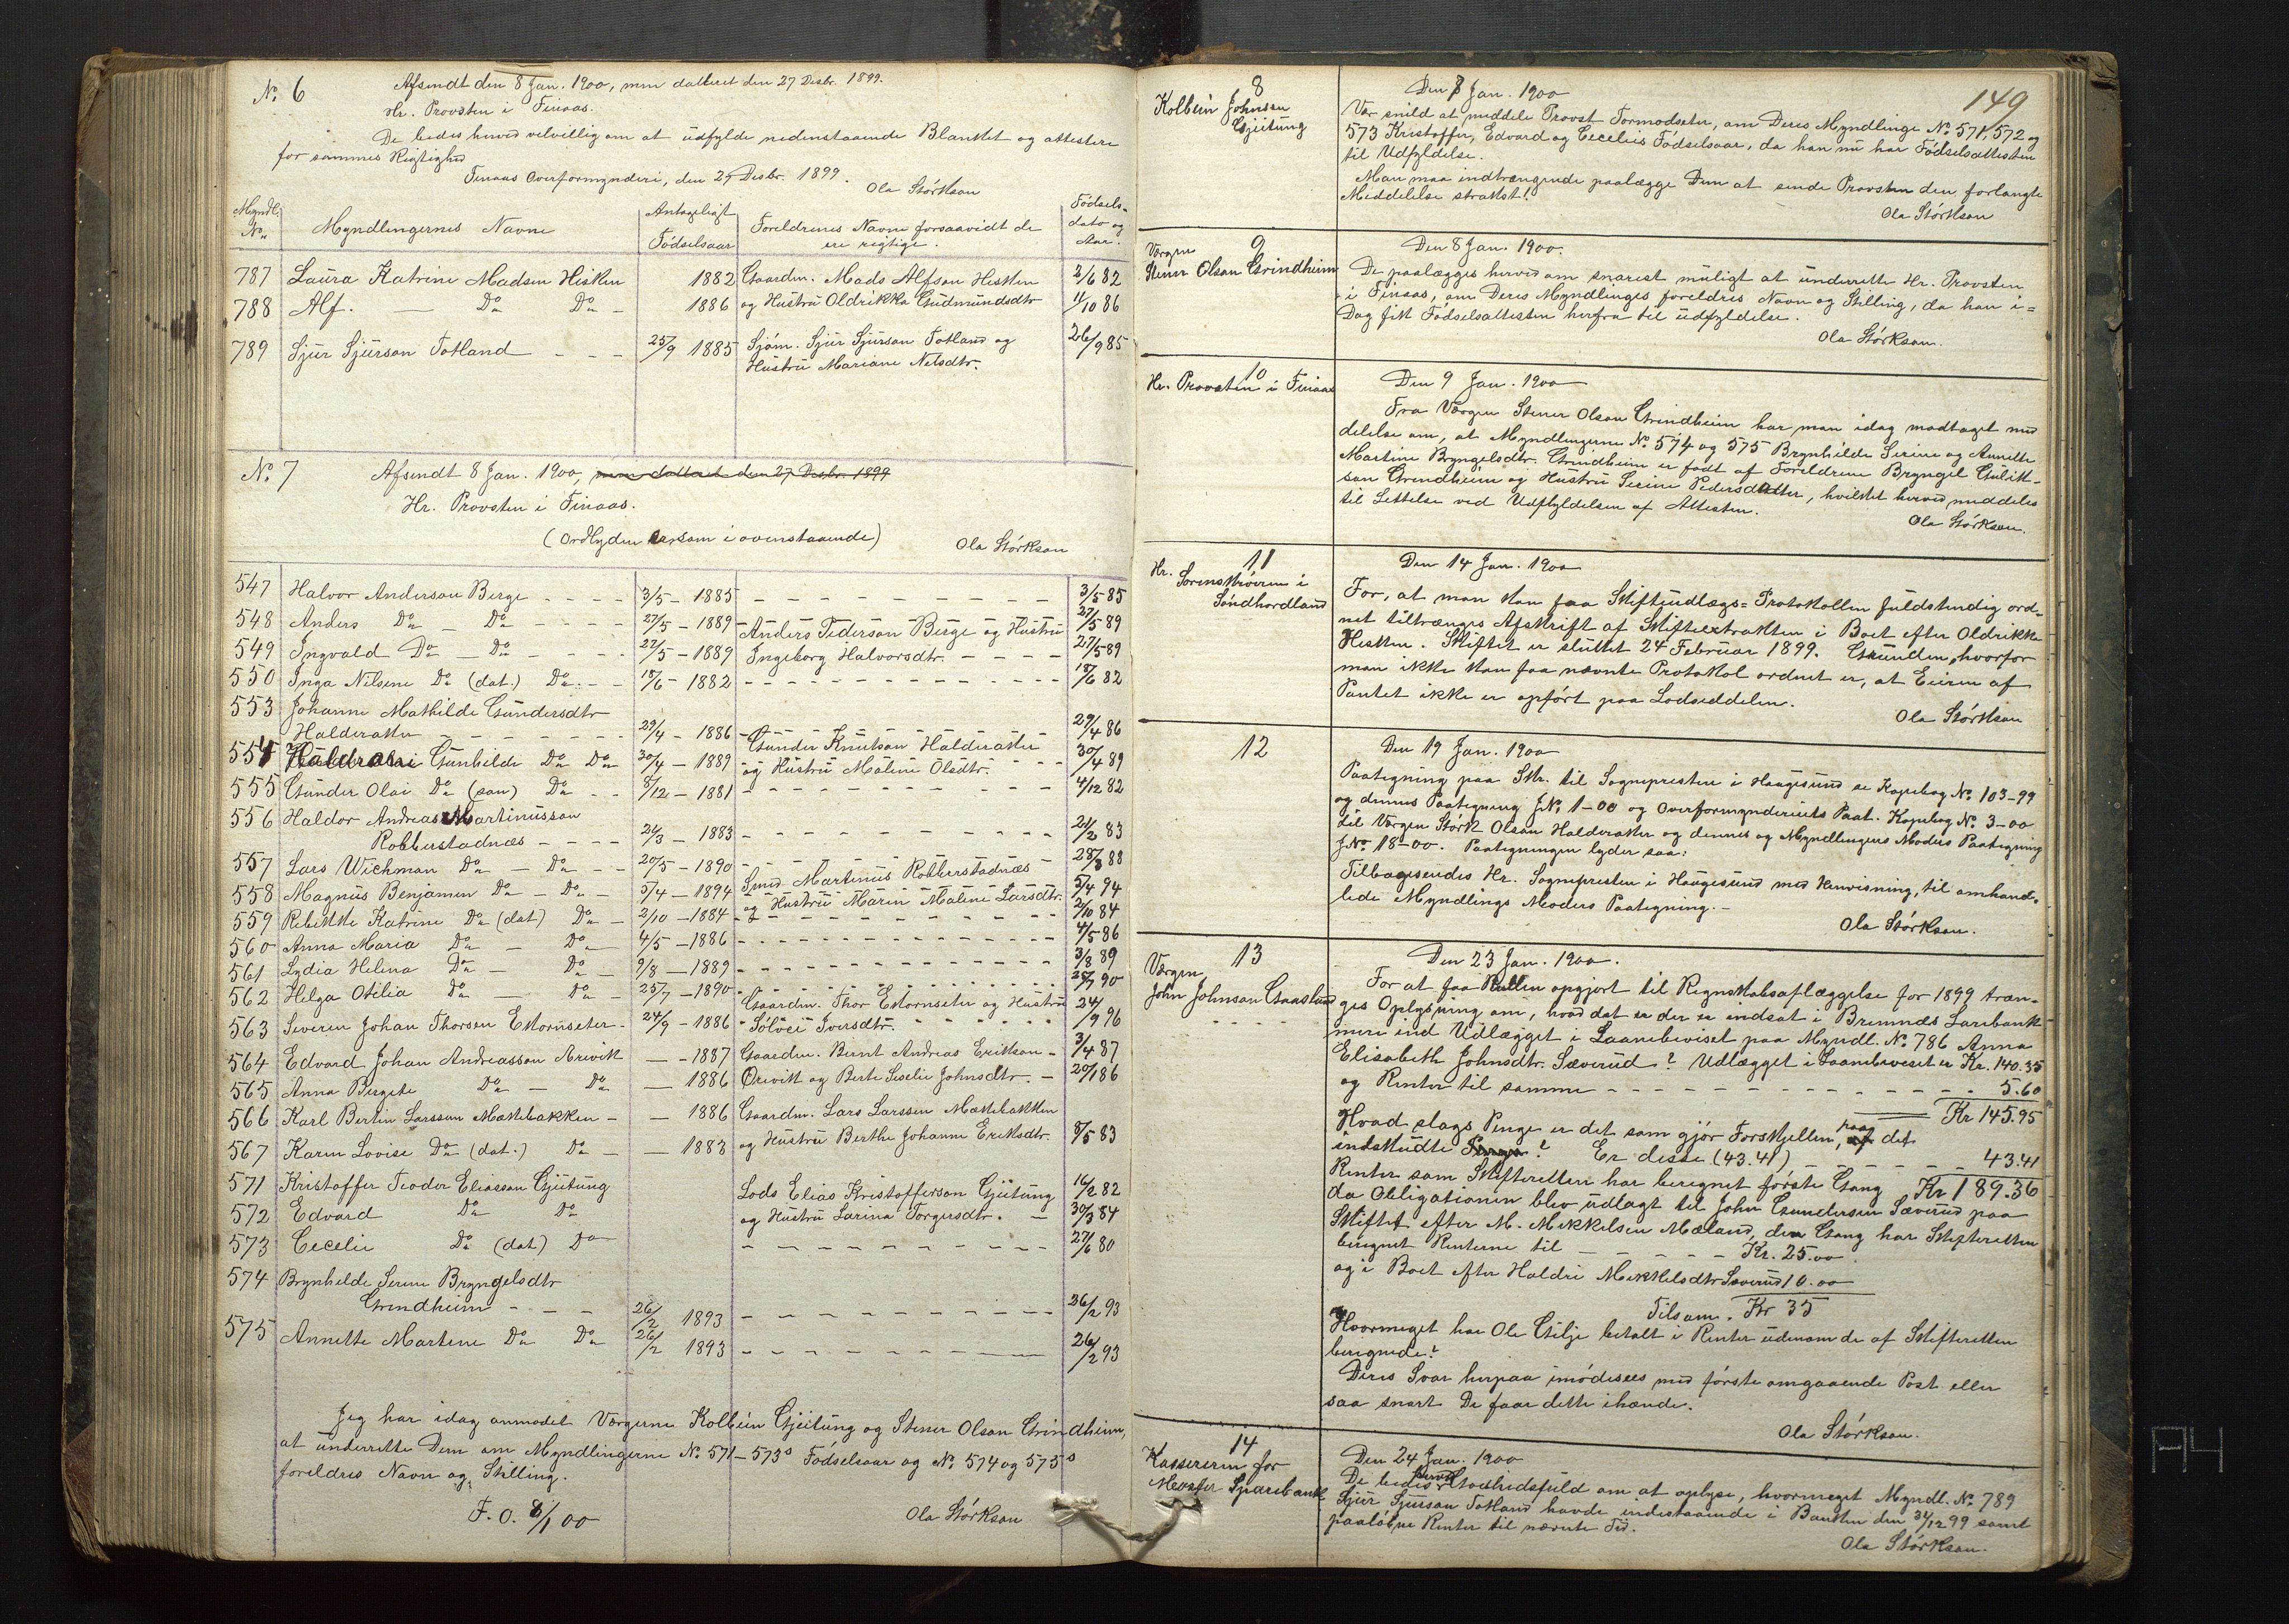 No. 6
Afsendt den 8 Jan. 1900, men datteret den 27 Desbr. 1899.
Hr. Provsten i Finaas.
De bedes herved velvillig om at udfylde nedenstaaende Blanket og attestere
for sammes Rigtighed
Finaas Overformynderi, den 27 Desbr. 1899.
Ola Störkson
Myndl. No. Myndlingernes Navne Antageligt Födselsaar Foreldrenes Navne forsaavidt de ere rigtige. Födsels-dato og Aar.
787 Laura Katrine Madsen Hisken 1882 Gaardm. Mads Alfson Hisken 2/6 82
788 Alf. — Do Do - 1886 og Hustru Oldrikka Gudmundsdtr 11/10 86
789 Sjur Sjurson Totland - - - 25/9 1885 Sjöm. Sjur Sjurson Totland og 26/9 85
Hustru Mariane Nelsdtr.
No. 7 Afsendt 8 Jan. 1900, men datteret den 27 Desbr. 1899
Hr. Provsten i Finaas.
(Ordlyden er som i ovenstaaende)
Ola Störkson
547 Halvor Anderson Berge - - - - 3/5 - 1885 - - - - 3/5 85
548 Anders Do - Do - - - - 27/5 - 1889 Anders Pederson Berge og Hustru 27/5 89
549 Ingvald Do - Do - - - - 27/5 - 1889 Ingeborg Halvorsdtr. - - - - 27/5 89
550 Inga Nilsine Do (dat.) Do - - 18/6 - 1882 - - - - 18/6 82
553 Johanne Mathilde Gundersdtr
Halderaker - - - - 29/4 - 1886 - - - - 29/4 86
554 Gunhilde Do Do 30/4 - 1889 Gunder Knutson Halderaker 30/4 89
og Hustru Malene Olsdtr. - - -
555 Gunder Olai Do (son) Do - - 8/12 - 1881 - - - - 4/12 82
556 Haldor Andreas Martinusson
Robberstadnæs - - - - 21/3 - 1883 - - - - 21/2 83
557 Lars Wichman Do - Do - - 20/5 - 1890 - - - - 28/8 88
558 Magnus Benjamin Do - Do - 5/4 - 1894 Smed Martinus Robberstadnæs 5/4 94
559 Rebekke Katrine Do (dat) Do - 2/10 - 1884 og Hustru Marin Malene Larsdtr. 2/10 84
560 Anna Maria Do - Do 4/5 - 1886 - - - - 4/5 86
561 Lydia Helena Do - Do - 9/8 - 1889 - - - - 3/8 89
562 Helga Otilia Do - Do - 25/7 - 1890 - - - - 28/7 90
563 Severin Johan Thorsen Ekornseter - 24/9 - 1886 Gaardm. Thor Ekornseter og Hustru Sölvei Iversdtr. 24/9 96
564 Edvard Johan Andreasson Arevik - - 1887 Gaardm. Bernt Andreas Erikson - 3/4 87
565 Anna Bergete Do - Do - 1886 Orevik og Berte Seselie Johnsdtr. - 20/1 86
566 Karl Bertin Larsson Mækebakken - - 1886 Gaardm. Lars Larssen Mækebakken
567 Karen Lovise Do (dat.) Do - - 1883 og Hustru Berthe Johanne Eriksdtr. 8/5 83
571 Kristoffer Teodor Eliasson Gjeitung Lods Elias Kristofferson Gjeitung 16/2 82
572 Edvard Do Do og Hustru Larina Torgersdtr. - 30/3 84
573 Cecelie Do (dat) Do - - - - 27/6 80
574 Brynhilde Serine Bryngelsdtr
Grindheim - - - 26/2 1893 - - - - 26/2 93
575 Annette Martene Do Do 26/2 1893 - - - - 26/2 93
Jeg har idag anmodet Værgerne Kolbein Gjeitung og Stener Olson Grindheim,
at underrette Dem om Myndlingerne No. 571-573s Födselsaar og No. 574 og 575s
foreldres Navn og Stilling.
F. O. 8/1 00
Ola Störkson
149
8
Kolbein Johnsen
Gjeitung
Den 8 Jan. 1900
Vær snild at meddele Provst Tormodseter, om Deres Myndlinge No. 571, 572 og
573 Kristoffer, Edvard og Cecelies Födselsaar, da han nu har Födselsattesten
til Udfyldelse.
Man maa indtrængende paalægge Dem at sende Provsten den forlangte
Meddelelse strakst!
Ola Störkson
9
Værgen
Stener Olson Grindheim
Den 8 Jan. 1900.
De paalægges herved om snarest muligt at underrette Hr. Provsten
i Finaas, om Deres Myndlinges foreldres Navn og Stilling, da han i=
Dag fik Födselsattesten herfra til udfyldelse.
Ola Störkson.
10
Hr. Provsten i Finaas
Den 9 Jan. 1900
Fra Værgen Stener Olson Grindheim har man idag modtaget med
delelse om, at Myndlingerne No. 574 og 575 Brynhilde Serine og Annette
Martine Bryngelsdtr. Grindheim er födt af Foreldrene Bryngel Guldik-
son Grindheim og Hustru Serine Pedersdatter, hvilket herved meddeles
til Lettelse ved Udfyldelsen af Attesten.
Ola Störkson.
11
Hr. Sorenskriveren i
Söndhordland
Den 14 Jan. 1900
For, at man kan faa Skifteudlægs=Protokollen fuldstendig ord-
net tiltrænges Afskrift af Skifteextrakten i Boet efter Oldrikke
Hisken. Skiftet er sluttet 24 Februar 1899. Grunden, hvorfor
man ikke kan faa nævnte Protokol ordnet er, at Eieren af
Pantet ikke er opfört paa Lodseddelen.
Ola Störkson
12
Den 19 Jan. 1900
Paategning paa Skr. til Sognepresten i Haugesund se Kopibog No. 103-99
og dennes Paategning JNo. 1-00 og Overformynderiets Paat. Kopibog No. 3-00
til Værgen Störk Olson Halderaker og dennes og Myndlingens Moders Paategning
JNo. 18-00. Paategningen lyder saa:
Tilbagesendes Hr. Sognepresten i Haugesund med Henvisning, til omhand-
lede Myndlings Moders Paategning.-
Ola Störkson.
13
Værgen
John Johnson Gaaslund
Den 23 Jan. 1900.
For at faa Rullen opgjort til Regnskabsaflæggelse for 1899 træn-
ges Oplysning om, hvad det er der er indsat i Bremnæs Sparebank
mere end Udlægget i Laanebeviset paa Myndl. No. 786 Anna
Elisabeth Johnsdtr. Sæverud? Udlægget i Laanebeveset er Kr. 140.35
og Renter til samme - - - - 5.60
Kr 145.95
Hvad slags Penge er det som gjör Forskjellen, paa det
indskudte ? Er desse (43.41) - - - - 43.41
Kr 189.36
Renter som Skifteretten har beregnet förste Gang
da Obligationen blev udlagt til John Gundersen Sæverud paa
Skiftet efter M. Mikkelsen Mæland, den Gang har Skifteretten
beregnet Renterne til - - - - Kr. 25.00
og i Boet efter Haldri Mikkelsdtr Sæverud 10.00
Tilsam. Kr 35
Hvormeget har Ole Gilje betalt i Renter udenom de af Skifteretten
beregnede?
Deres Svar herpaa imödesees med förste omgaaende Post eller
saa snart De faar dette ihænde.
Ola Störkson.
14
Kassereren for
Moster Sparebank
Den 24 Jan. 1900
De bedes herved Godhedsfuld om at oplyse, hvormeget Myndl. No. 789
Sjur Sjurson Totland havde indestaaende i Banken den 31/12 99 samt
paalöbne Renter til nævnte Tid.
Ola Störkson.